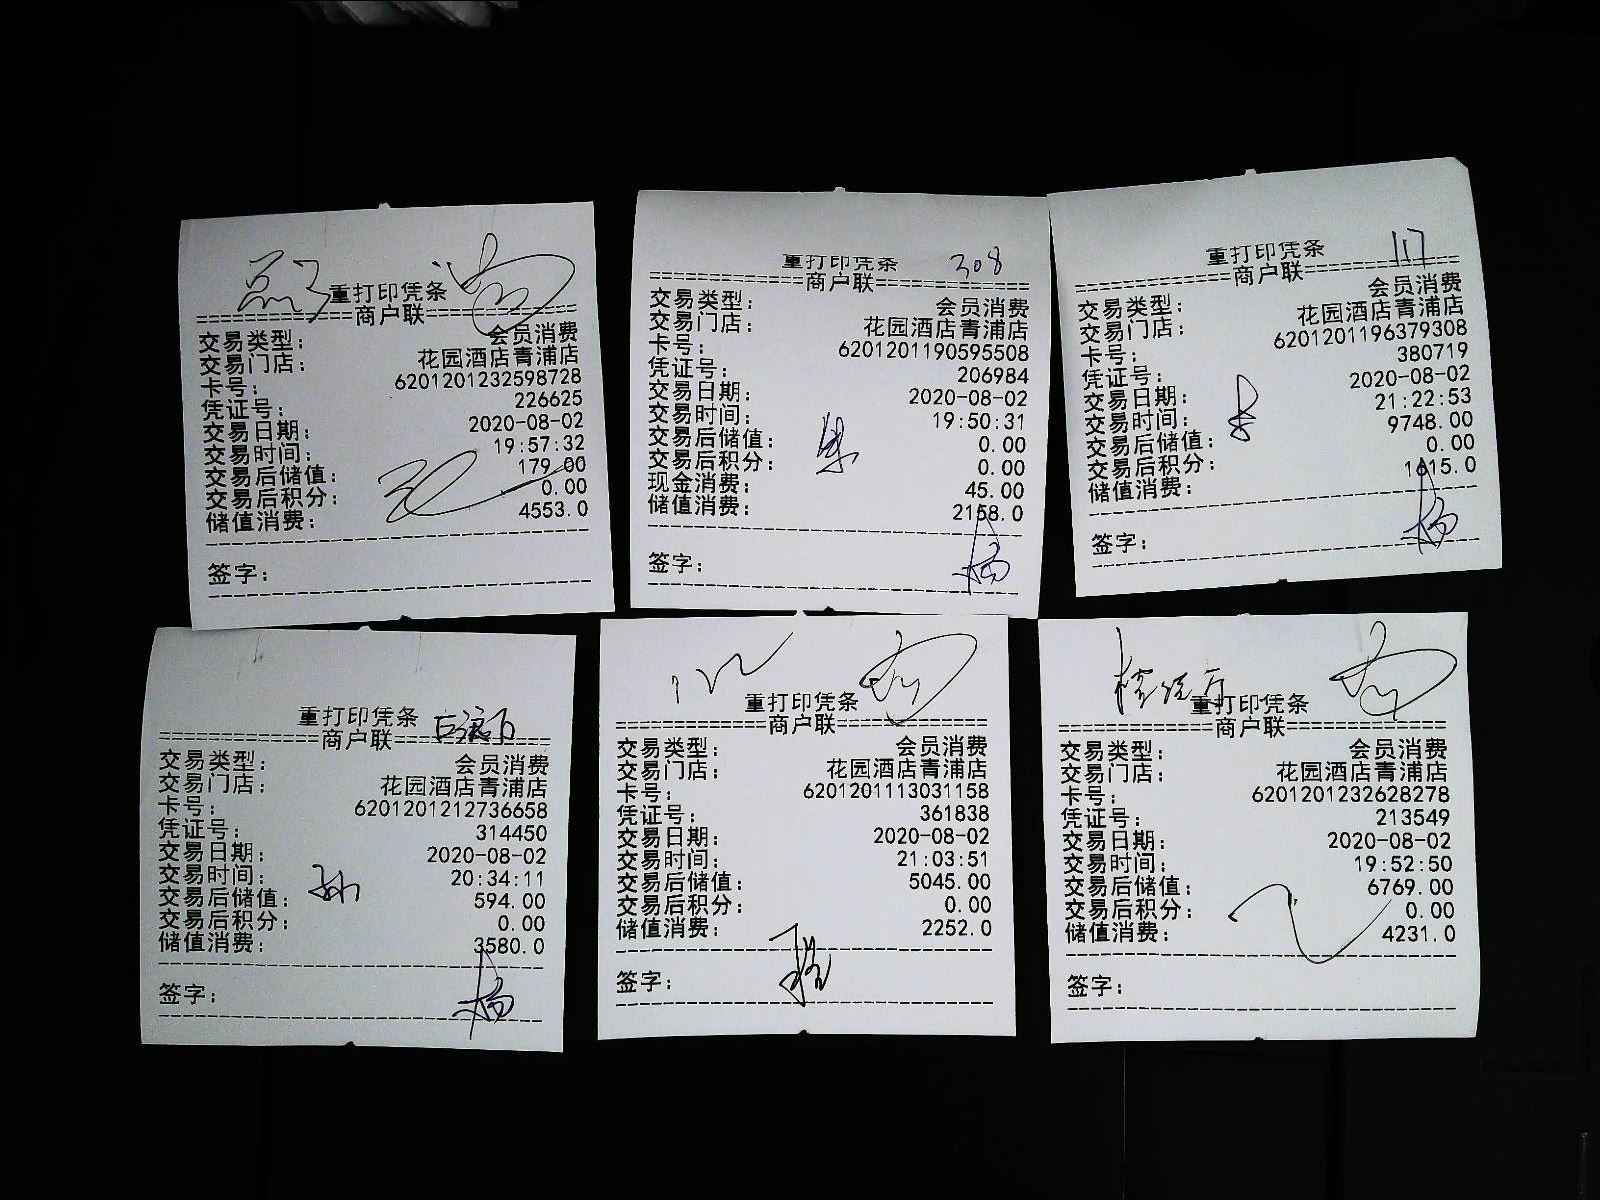 重打印凭条
商户联
交易类型: 会员消费
交易门店: 花园酒店青浦店
卡号: 6201201232598728
凭证号: 226625
交易日期: 2020-08-02
交易时间: 19:57:32
交易后储值: 179.00
交易后积分: 0.00
储值消费: 4553.0
签字:
重打印凭条 308
商户联
交易类型: 会员消费
交易门店: 花园酒店青浦店
卡号: 6201201190595508
凭证号: 206984
交易日期: 2020-08-02
交易时间: 19:50:31
交易后储值: 0.00
交易后积分: 0.00
现金消费: 45.00
储值消费: 2158.0
签字: 杨
重打印凭条 117
商户联
交易类型: 会员消费
交易门店: 花园酒店青浦店
卡号: 6201201196379308
凭证号: 380719
交易日期: 2020-08-02
交易时间: 21:22:53
交易后储值: 9748.00
交易后积分: 0.00
储值消费: 1615.0
签字: 杨
重打印凭条
商户联
交易类型: 会员消费
交易门店: 花园酒店青浦店
卡号: 6201201212736658
凭证号: 314450
交易日期: 2020-08-02
交易时间: 20:34:11
交易后储值: 594.00
交易后积分: 0.00
储值消费: 3580.0
签字: 杨
重打印凭条
商户联
交易类型: 会员消费
交易门店: 花园酒店青浦店
卡号: 6201201113031158
凭证号: 361838
交易日期: 2020-08-02
交易时间: 21:03:51
交易后储值: 5045.00
交易后积分: 0.00
储值消费: 2252.0
签字:
重打印凭条
商户联
交易类型: 会员消费
交易门店: 花园酒店青浦店
卡号: 6201201232628278
凭证号: 213549
交易日期: 2020-08-02
交易时间: 19:52:50
交易后储值: 6769.00
交易后积分: 0.00
储值消费: 4231.0
签字: